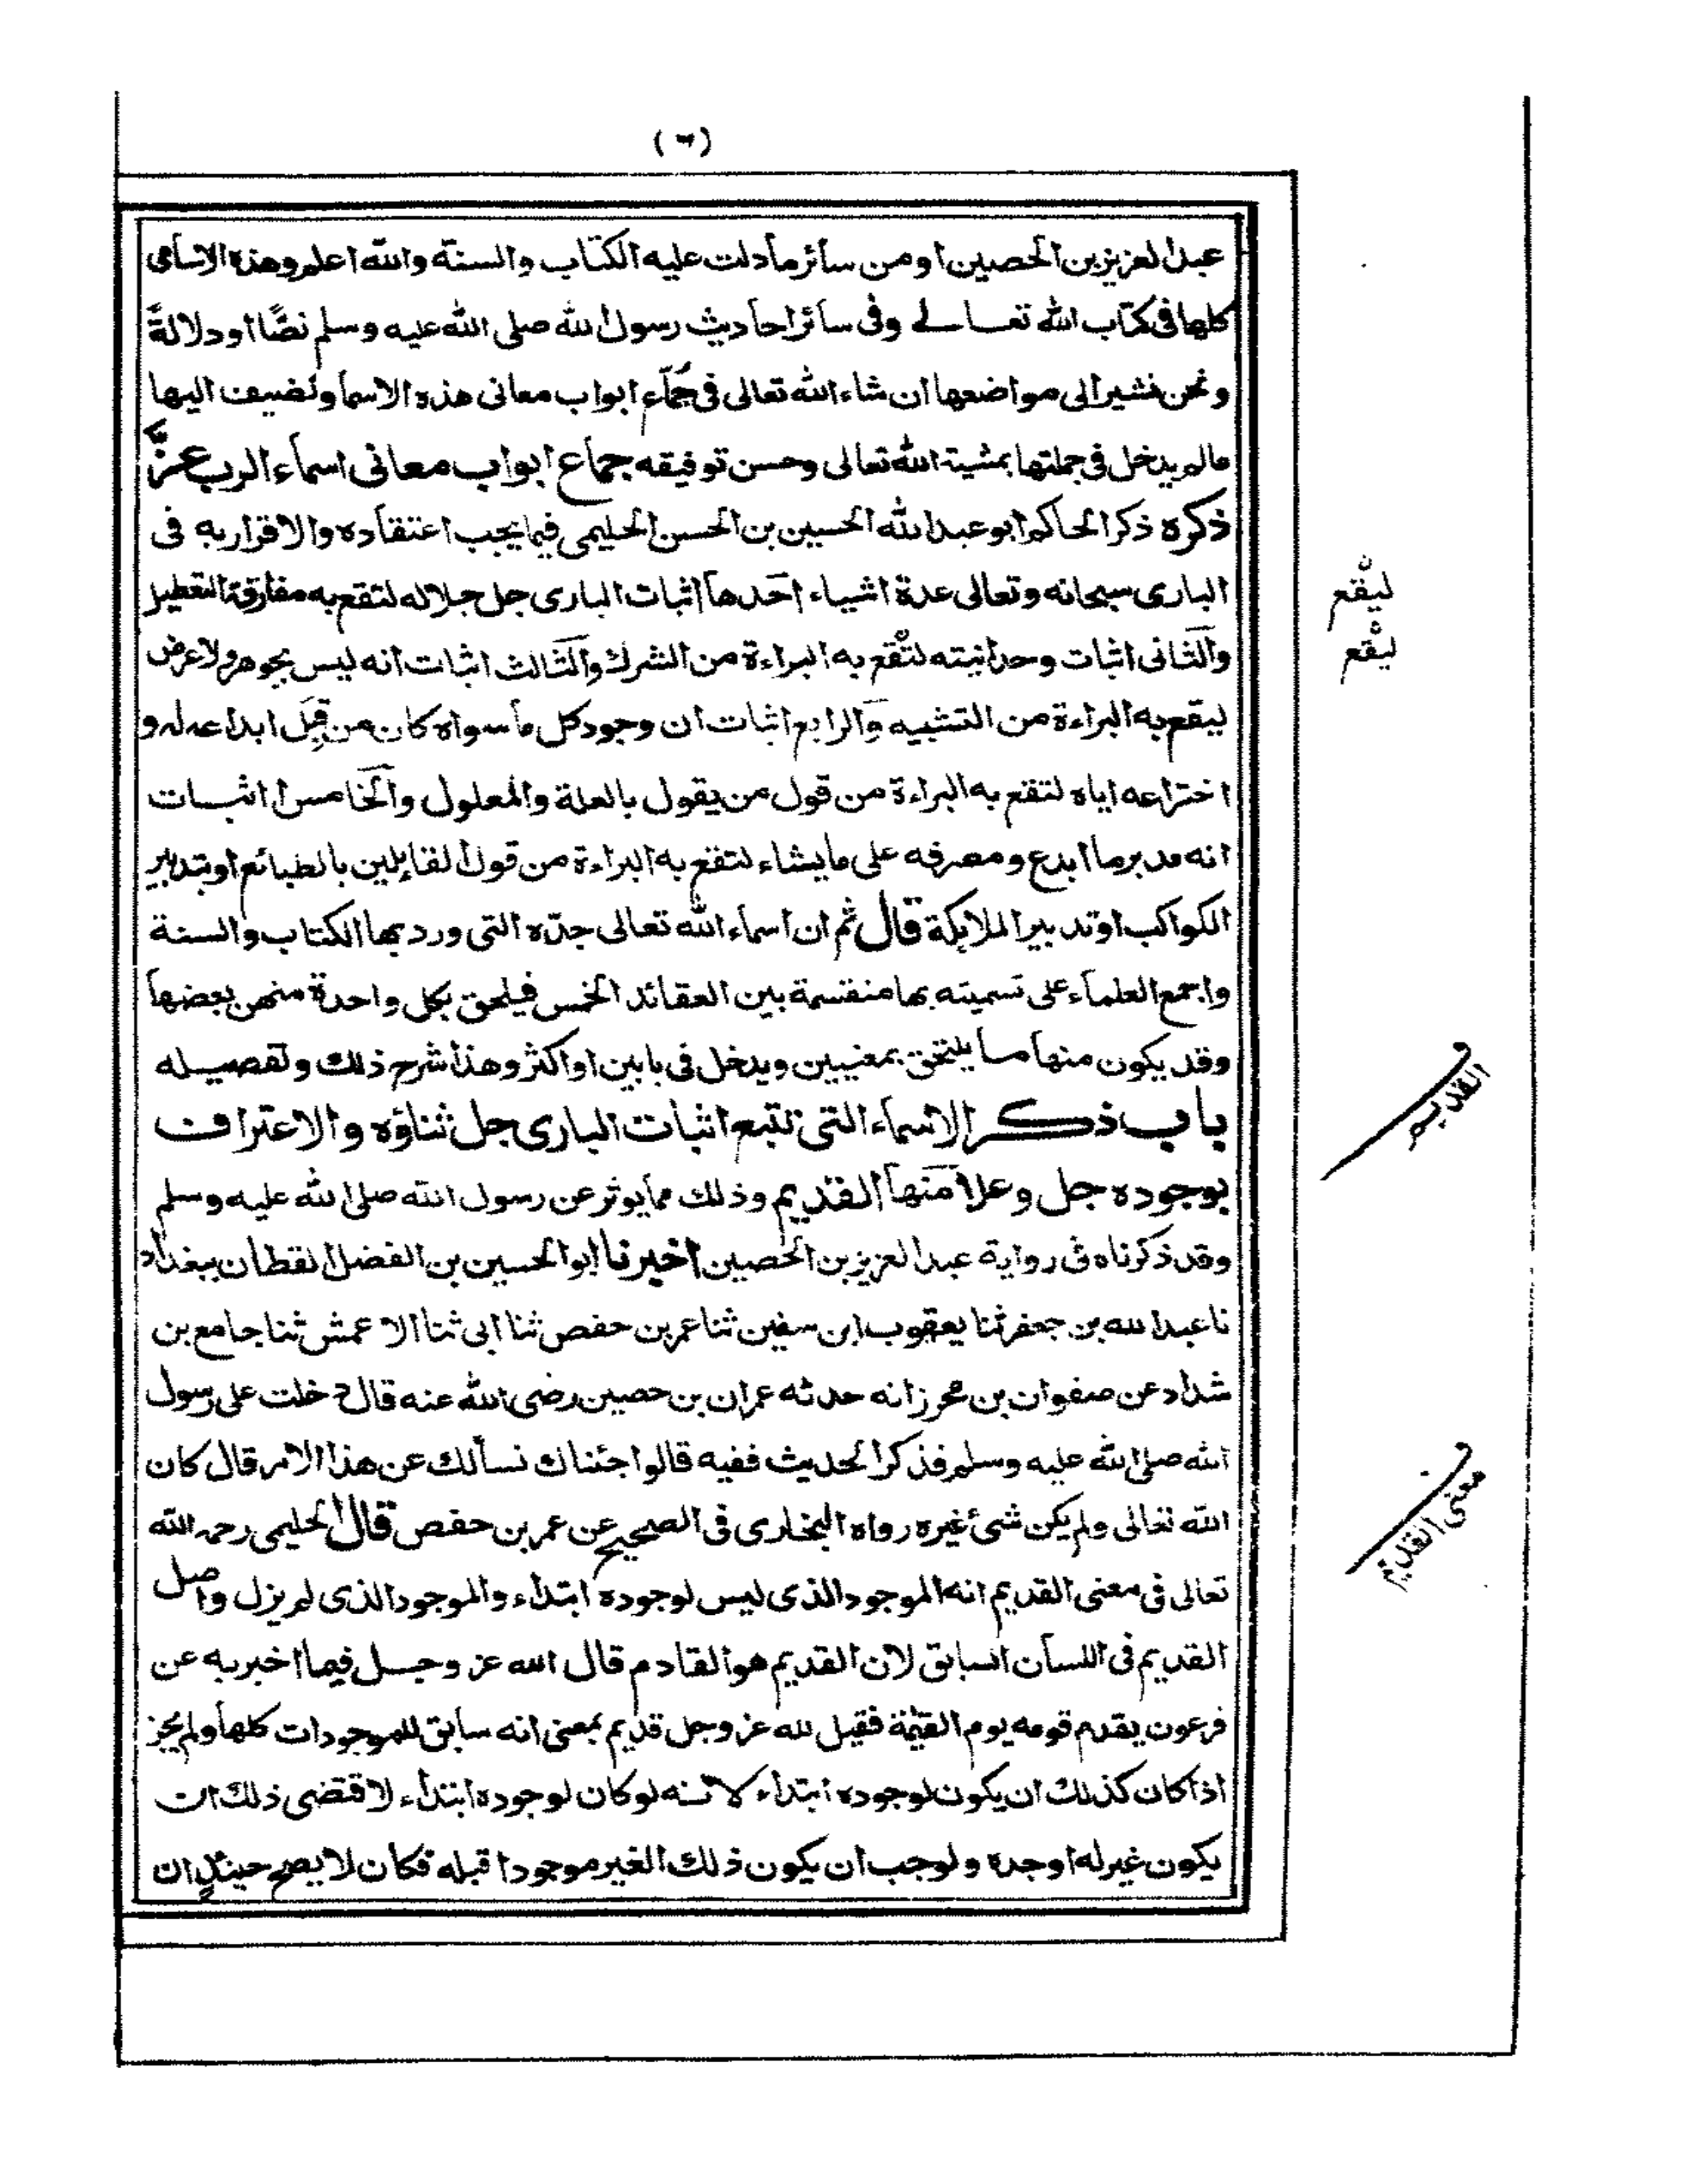 (٦)
عبد العزيز بن الحصين او من سائر ما دلت عليه الكتاب والسنة والله اعلم وهذه الاسامى
كلها فى كتاب الله تعالے وفى سائر احاديث رسول الله صلى الله عليه وسلم نصًّا او دلالةً
ونحن نشير الى مواضعها ان شاء الله تعالى فى جماع ابواب معانى هذه الاسما ونضيف اليها
مالم يدخل فى جملتها بمشية الله تعالى وحسن توفيقه جماع ابواب معانى اسماء الرب عزَّ
ذكره ذكر الحاكم ابو عبد الله الحسين بن الحسن الحليمى فيما يجب اعتقاده والاقرار به فى
البارى سبحانه وتعالى عدة اشياء احدها اثبات البارى جل جلاله لتقع به مفارقة التعطيل
والثانى اثبات وحدانيته لتقع به البراءة من الشرك والثالث اثبات انه ليس بجوهر ولا عرض
ليقع به البراءة من التشبيه والرابع اثبات ان وجود كل ما سواه كان من قِبَل ابداعه له و
اختراعه اياه لتقع به البراءة من قول من يقول بالعلة والمعلول والخامس اثبات
انه مدبر ما ابدع ومصرفه على ما يشاء لتقع به البراءة من قول القايلين بالطبائع او بتدبير
الكواكب او تدبير الملايكة قال ثم ان اسماء الله تعالى جدّه التى ورد بها الكتاب والسنة
واجمع العلماء على تسميته بها منقسمة بين العقائد الخمس فيلحق بكل واحدة منهن بعضها
وقد يكون منها ما يلتحق بمعنيين ويدخل فى بابين او اكثر وهذا شرح ذلك وتفصيله
باب ذكر الاسماء التى تتبع اثبات البارى جل ثناؤه والاعتراف
بوجوده جل وعلا منها القديم وذلك مما يوثر عن رسول الله صلى الله عليه وسلم
وقد ذكرناه فى رواية عبد العزيز بن الحصين اخبرنا ابو الحسين بن الفضل القطان ببغداد
نا عبد الله بن جعفر ثنا يعقوب ابن سفين ثنا عمر بن حفص ثنا ابى ثنا الاعمش ثنا جامع بن
شداد عن صفوان بن محرز انه حدثه عمران بن حصين رضى الله عنه قال دخلت على رسول
الله صلى الله عليه وسلم فذكر الحديث ففيه قالوا جئناك نسألك عن هذا الامر قال كان
الله تعالى ولم يكن شئ غيره رواه البخارى فى الصحيح عن عمر بن حفص قال الحليمى رحمه الله
تعالى فى معنى القديم انه الموجود الذى ليس لوجوده ابتداء والموجود الذى لم يزل واصل
القديم فى اللسان السابق لان القديم هو القادم قال الله عز وجل فيما اخبر به عن
فرعون يقدم قومه يوم القيٰمة فقيل لله عز وجل قديم بمعنى انه سابق للموجودات كلها ولم يجز
اذا كان كذلك ان يكون لوجوده ابتداء لانه لو كان لوجوده ابتداء لاقتضى ذلك ان
يكون غير له اوجده ولوجب ان يكون ذلك الغير موجودا قبله فكان لا يصح حينئذٍ ان
ليقع
ليقع
القديم
معنى القديم